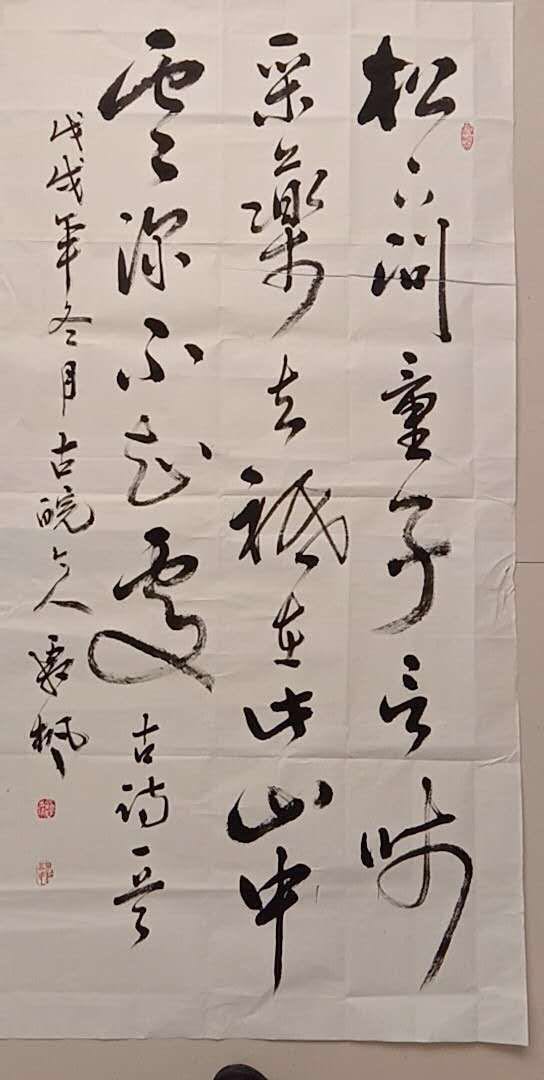 松下问童子言师
采藥去祗在此山中
雲深不知處 古诗一首
戊戌年冬月古皖人枫